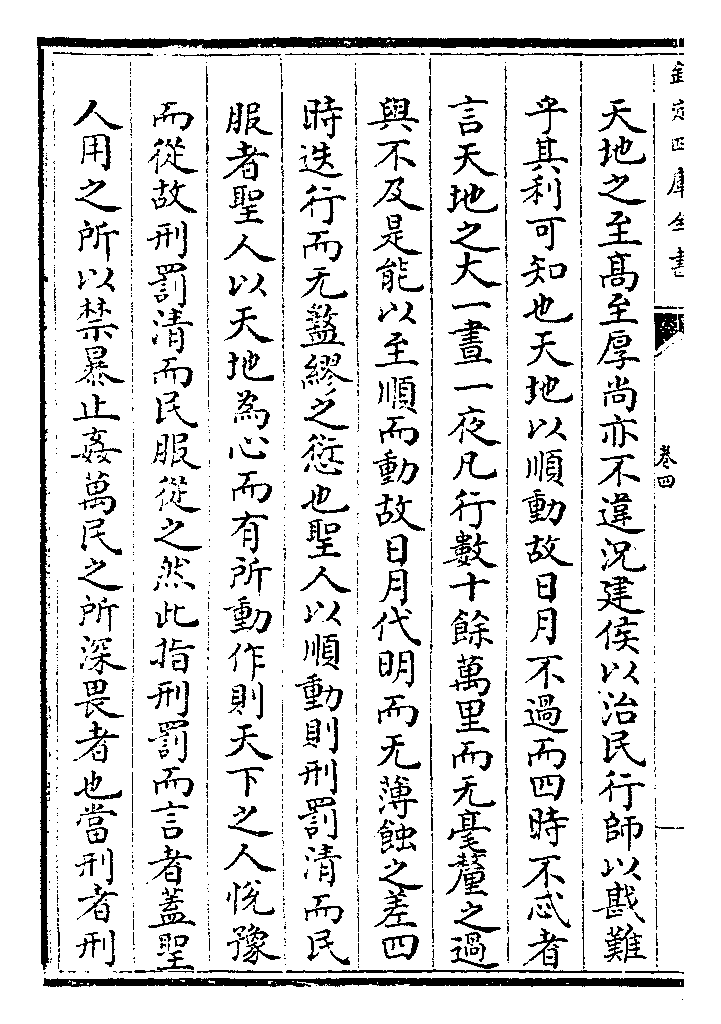 欽定四庫全書
卷四
天地之至髙至厚尚亦不違況建侯以治民行師以戡難
乎其利可知也天地以順動故日月不過而四時不忒者
言天地之大一晝一夜凡行數十餘萬里而无毫釐之過
與不及是能以至順而動故日月代明而无薄蝕之差四
時迭行而无盭繆之愆也聖人以順動則刑罰清而民
服者聖人以天地為心而有所動作則天下之人悅豫
而從故刑罰清而民服從之然此指刑罰而言者蓋聖
人用之所以禁暴止姦萬民之所深畏者也當刑者刑